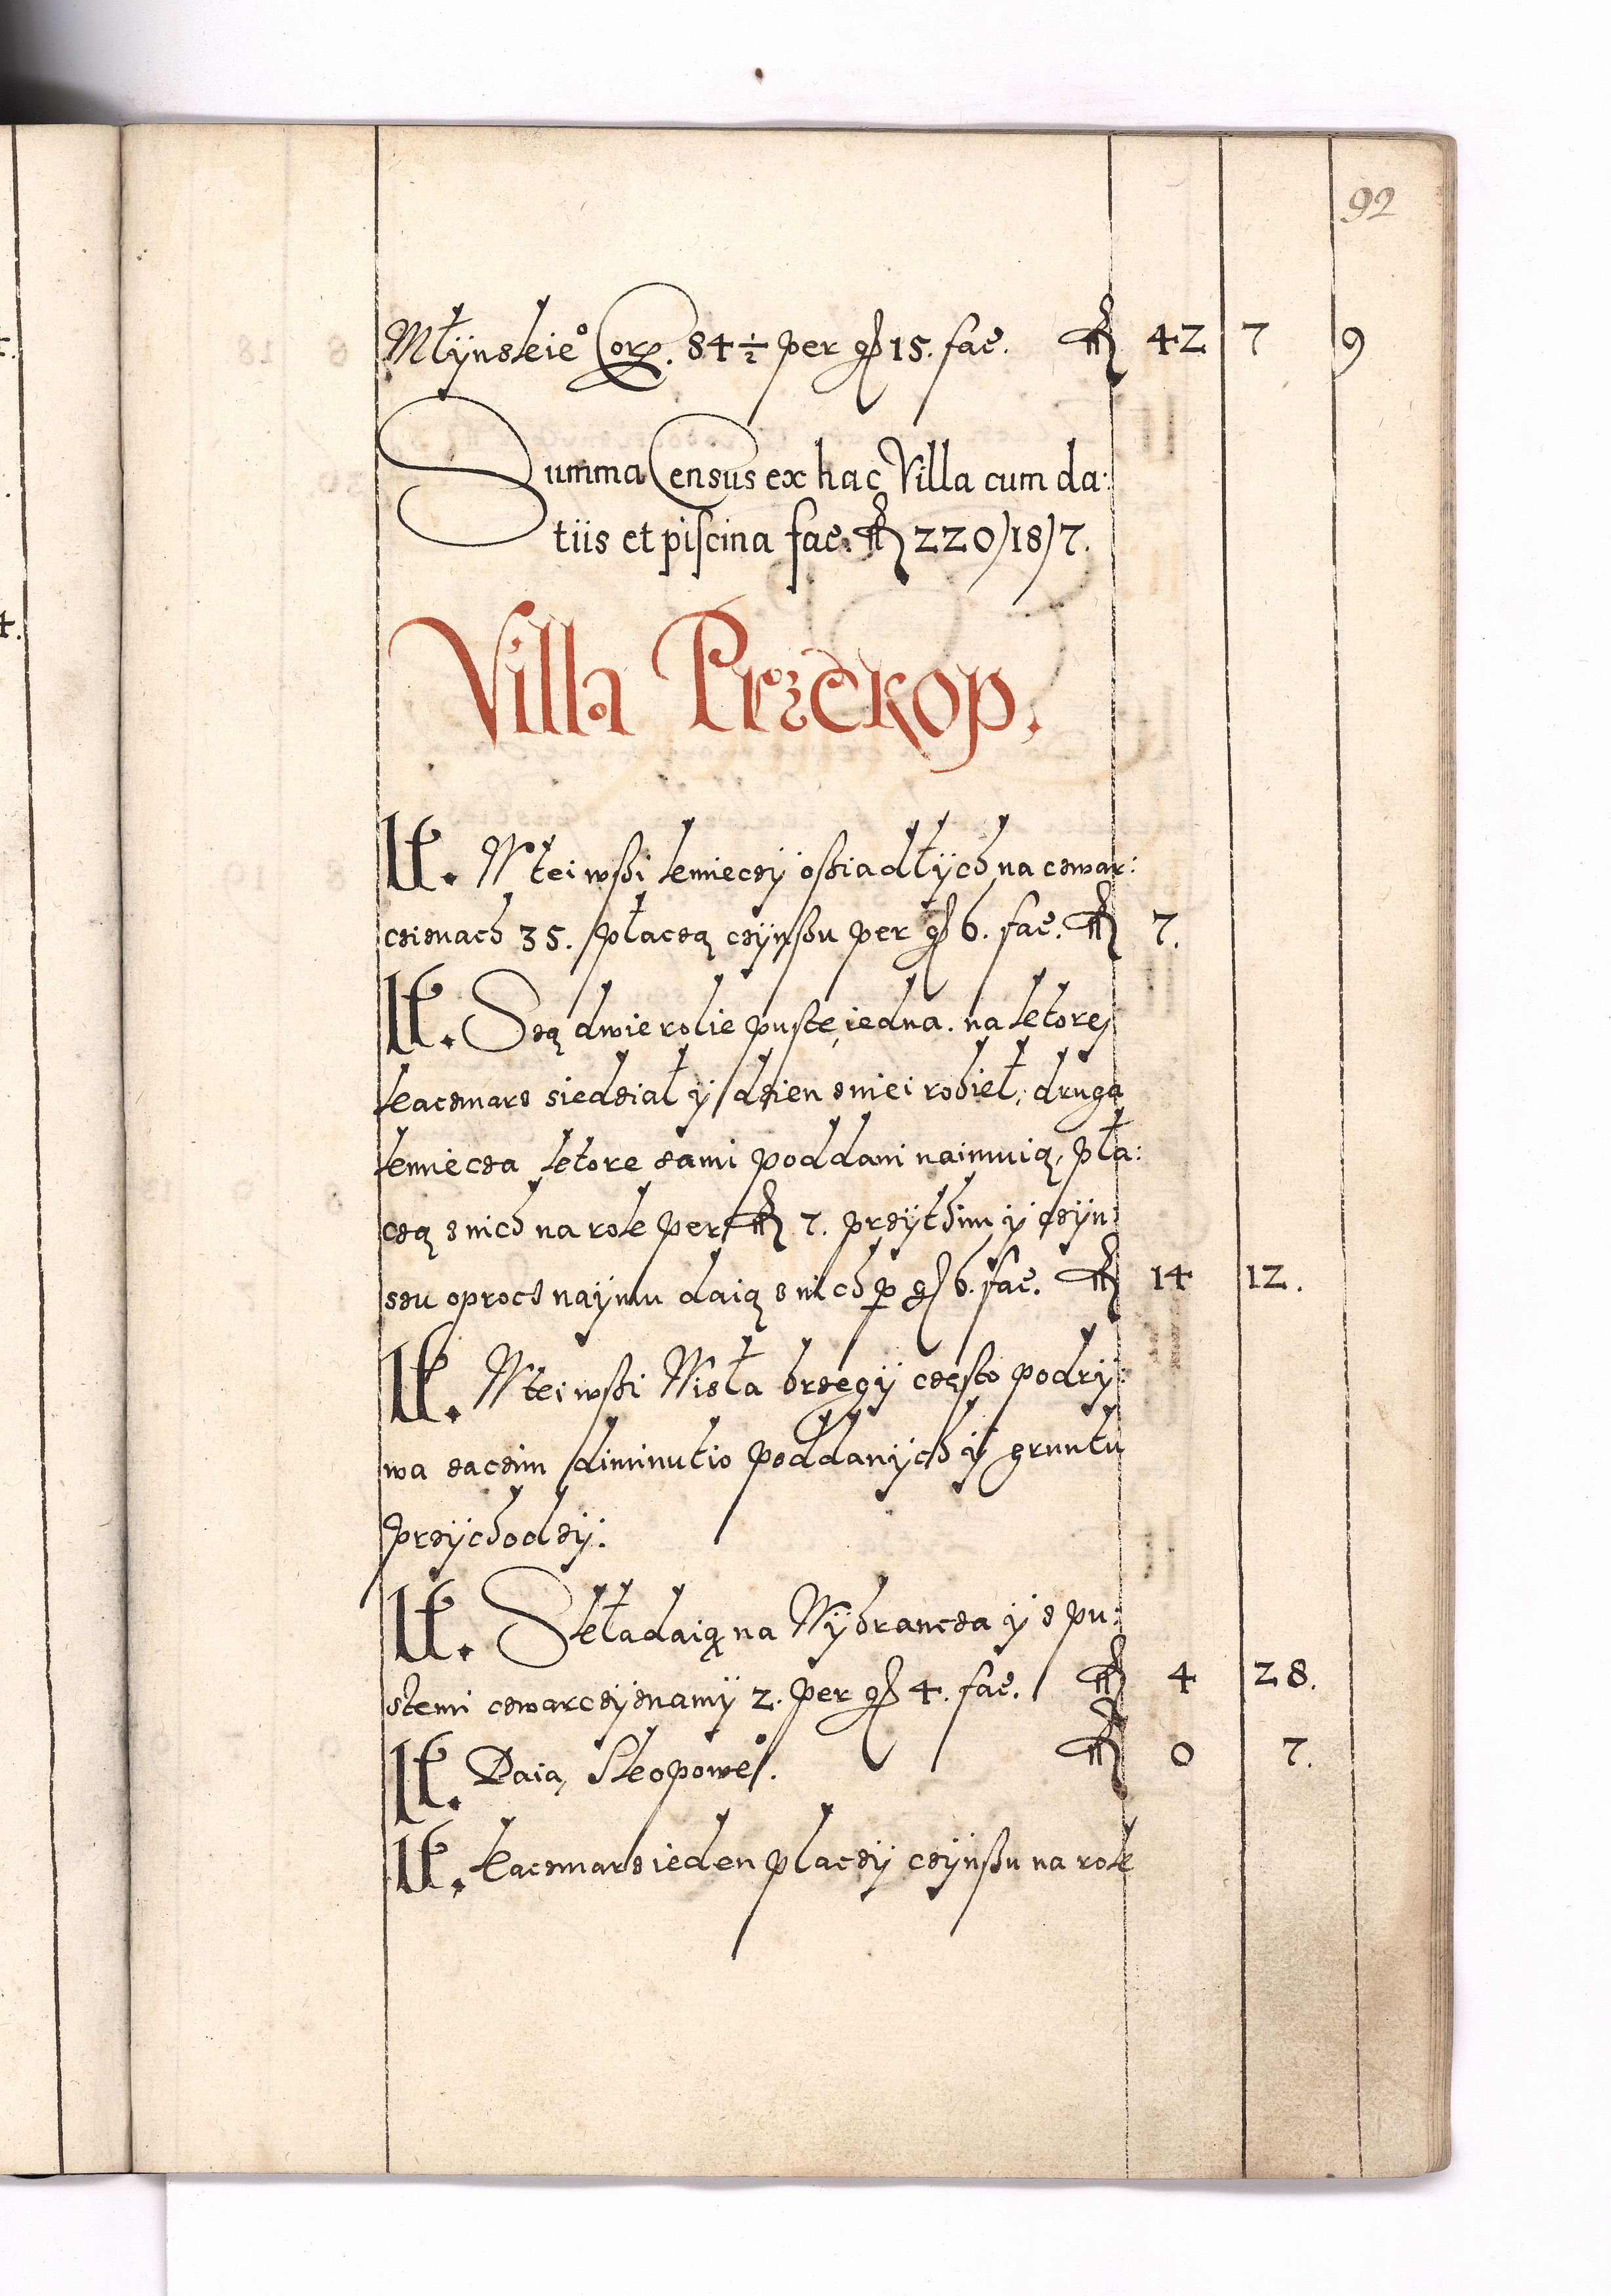 92
Młÿnskie° Cor. 84 ½ per gſ 15. fac. ꟻ 42 7 9
Summa Census ex hac Villa cum da:
tiis et piscina fac. 220/18/7.
Villa Przekop.
It. W tei wsßi kmieczÿ oßiadłÿch na czwar:
cziznach 35. płaczą czÿnßu per g 6. fac. 7.
It. Są dwie rolie puste, iedna. na ktorej
kaczmarz siedział ÿ dzien zniei robieł, druga
kmiecza ktore sami poddani naimuią, pła:
czą z nich na rok per 7. przÿthim ÿ czÿn:
szu oprocz naÿmu daią z nich p g 6. fac. 14 12.
It. W tei wsßi Wisła brzegÿ często podrÿ:
wa zaczim diminutio poddanÿch ÿ gruntu
przÿchodzÿ.
It. Składaią na Wÿbrancza ÿ z pu:
stemi czwarczÿznamÿ 2. per g 4. fac. 4 28.
It. Daią Skopowe°. 0 7.
It. kaczmarz ieden placzÿ czÿnßu na rok